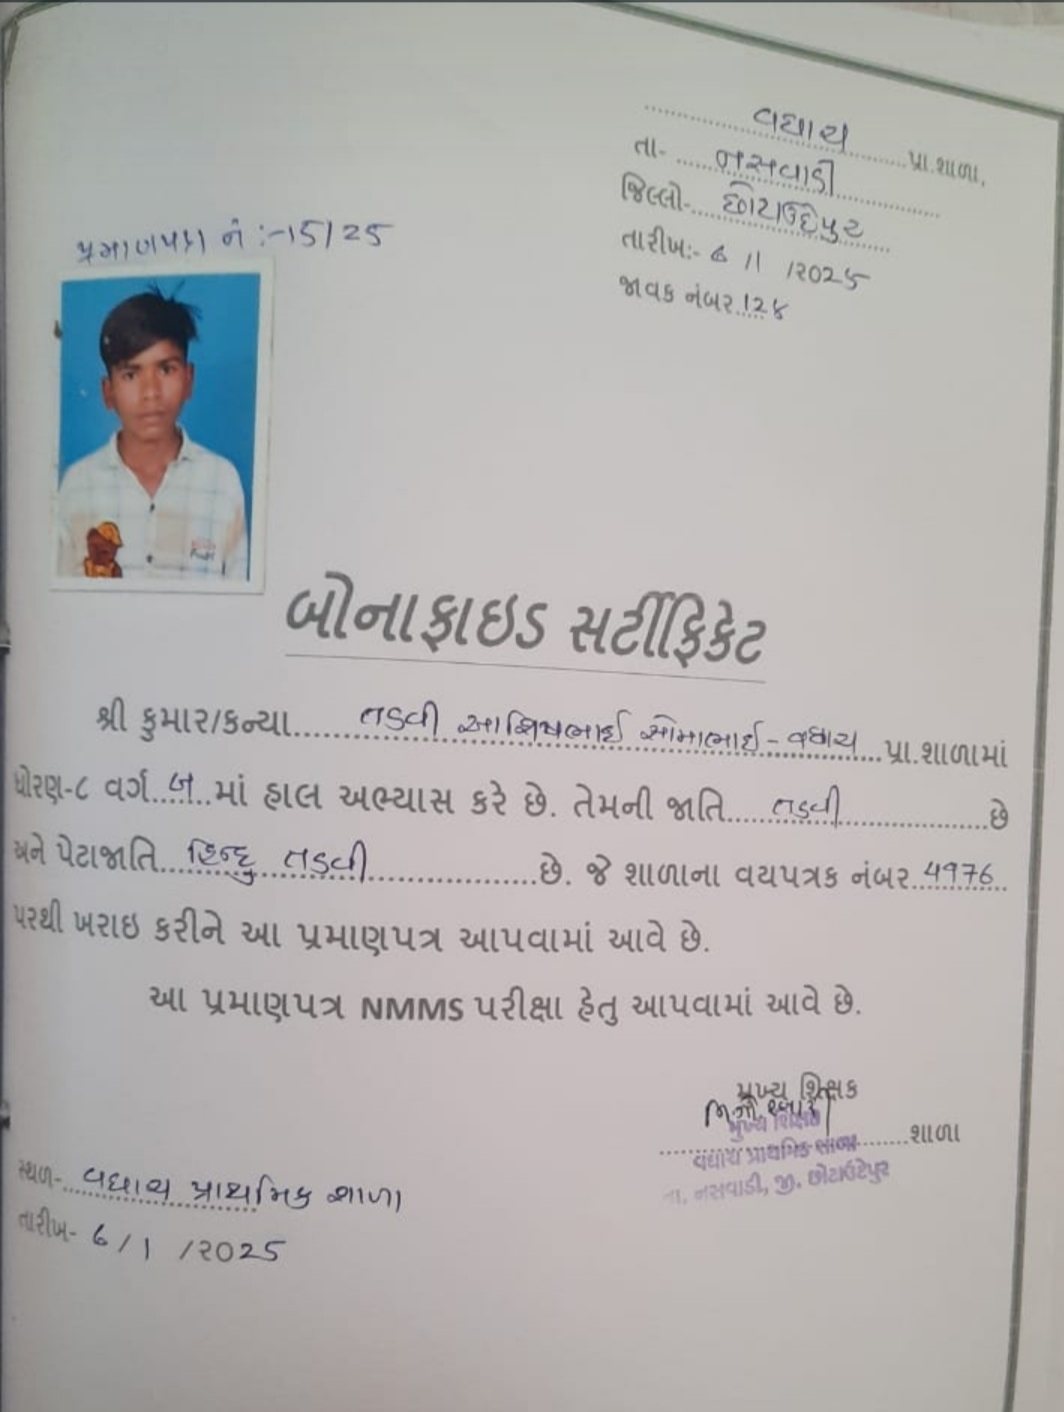 વઘાચ પ્રા.શાળા,
તા- નસવાડી
જિલ્લો- છોટાઉદેપુર
તારીખ:- ૬ /1 /૨૦25
જાવક નંબર 12૪
પ્રમાણપત્ર નં :-15/25
બોનાફાઇડ સર્ટીફિકેટ
શ્રી કુમાર/કન્યા તડવી આશિષભાઈ સોમાભાઈ - વઘાચ પ્રા.શાળામાં
ધોરણ-૮ વર્ગ બ માં હાલ અભ્યાસ કરે છે. તેમની જાતિ તડવી છે
અને પેટાજાતિ હિન્દુ તડવી છે. જે શાળાના વયપત્રક નંબર 4976
પરથી ખરાઇ કરીને આ પ્રમાણપત્ર આપવામાં આવે છે.
આ પ્રમાણપત્ર NMMS પરીક્ષા હેતુ આપવામાં આવે છે.
મુખ્ય શિક્ષક
મુખ્ય શિક્ષક
શાળા
વઘાચ પ્રાથમિક શાળા
તા. નસવાડી, જી. છોટાઉદેપુર
સ્થળ- વઘાચ પ્રાથમિક શાળા
તારીખ- ૬ / 1 /૨૦25